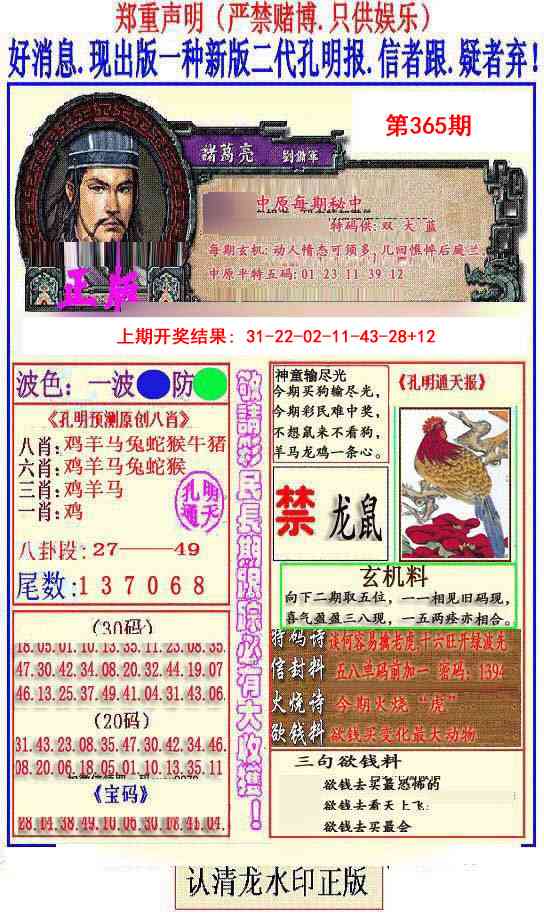 郑重声明（严禁赌博.只供娱乐）
好消息.现出版一种新版二代孔明报.信者跟.疑者弃!
第365期
諸葛亮
劉備軍
中原每期秘中
特码供: 双 大 蓝
每期玄机: 动人情态可须多, 几回憔悴后庭兰.
中原平特五码: 01 23 11 39 12
正版
上期开奖结果: 31-22-02-11-43-28+12
波色: 一波 防
《孔明预测原创八肖》
八肖: 鸡羊马兔蛇猴牛猪
六肖: 鸡羊马兔蛇猴
三肖: 鸡羊马
一肖: 鸡
孔明
通天
八卦段: 27——49
尾数: 1 3 7 0 6 8
(30码)
18.05.01.10.13.35.11.23.08.35.
47.30.42.34.08.20.32.44.19.07
46.13.25.37.49.41.04.31.43.06.
(20码)
31.43.23.08.35.47.30.42.34.46.
08.20.06.18.05.01.10.13.35.11
《宝码》
敬請彩民長期跟踪必有大收獲！
神童输尽光
今期买狗输尽光,
今期彩民难中奖,
不想鼠来不看狗,
羊马龙鸡一条心。
《孔明通天报》
禁
龙鼠
玄机料
向下二期取五位, 一一相见旧码现,
喜气盈盈三八现, 一五两疼亦相合。
特码诗 谈何容易擒老虎, 十六旺开绿波先
信封料 五八单码前加一 密码: 1394
火烧诗 今期火烧“虎”
欲钱料 欲钱买变化最大动物
三句欲钱料
欲钱去买最恐怖的
欲钱去看天上飞:
欲钱去买最会
认清龙水印正版